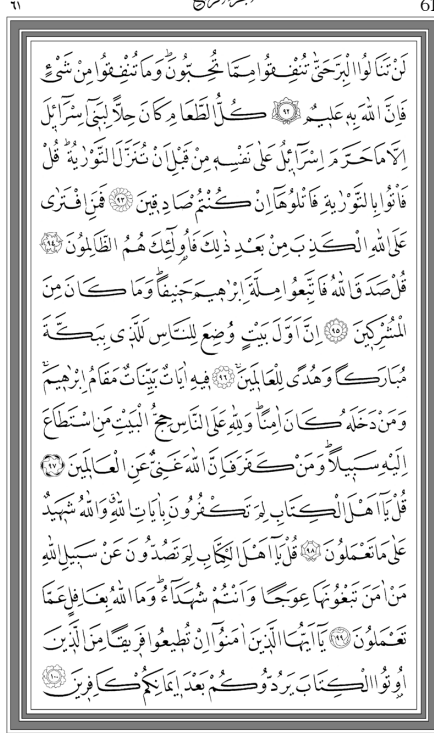 ٦١ 61
لَنْ تَنَالُوا الْبِرَّ حَتّٰى تُنْفِقُوا مِمَّا تُحِبُّونَۜ وَمَا تُنْفِقُوا مِنْ شَيْءٍ
فَاِنَّ اللّٰهَ بِهٖ عَلِيمٌ ﴿٩٢﴾ كُلُّ الطَّعَامِ كَانَ حِلًّا لِبَنٖٓى اِسْرَٓائٖلَ
اِلَّا مَا حَرَّمَ اِسْرَٓائٖلُ عَلٰى نَفْسِهٖ مِنْ قَبْلِ اَنْ تُنَزَّلَ التَّوْرٰيةُۜ قُلْ
فَأْتُوا بِالتَّوْرٰيةِ فَاتْلُوهَٓا اِنْ كُنْتُمْ صَادِقٖينَ ﴿٩٣﴾ فَمَنِ افْتَرٰى
عَلَى اللّٰهِ الْكَذِبَ مِنْ بَعْدِ ذٰلِكَ فَاُو۬لٰٓئِكَ هُمُ الظَّالِمُونَ ﴿٩٤﴾
قُلْ صَدَقَ اللّٰهُ فَاتَّبِعُوا مِلَّةَ اِبْرٰهٖيمَ حَنٖيفًاۜ وَمَا كَانَ مِنَ
الْمُشْرِكٖينَ ﴿٩٥﴾ اِنَّ اَوَّلَ بَيْتٍ وُضِعَ لِلنَّاسِ لَلَّذٖى بِبَكَّةَ
مُبَارَكًا وَهُدًى لِلْعَالَمٖينَۚ ﴿٩٦﴾ فٖيهِ اٰيَاتٌ بَيِّنَاتٌ مَقَامُ اِبْرٰهٖيمَۚ
وَمَنْ دَخَلَهُ كَانَ اٰمِنًاۜ وَلِلّٰهِ عَلَى النَّاسِ حِجُّ الْبَيْتِ مَنِ اسْتَطَاعَ
اِلَيْهِ سَبٖيلًاۜ وَمَنْ كَفَرَ فَاِنَّ اللّٰهَ غَنِىٌّ عَنِ الْعَالَمٖينَ ﴿٩٧﴾
قُلْ يَٓا اَهْلَ الْكِتَابِ لِمَ تَكْفُرُونَ بِاٰيَاتِ اللّٰهِۗ وَاللّٰهُ شَهٖيدٌ
عَلٰى مَا تَعْمَلُونَ ﴿٩٨﴾ قُلْ يَٓا اَهْلَ الْكِتَابِ لِمَ تَصُدُّونَ عَنْ سَبٖيلِ اللّٰهِ
مَنْ اٰمَنَ تَبْغُونَهَا عِوَجًا وَاَنْتُمْ شُهَدَٓاءُۜ وَمَا اللّٰهُ بِغَافِلٍ عَمَّا
تَعْمَلُونَ ﴿٩٩﴾ يَٓا اَيُّهَا الَّذٖينَ اٰمَنُٓوا اِنْ تُطٖيعُوا فَرٖيقًا مِنَ الَّذٖينَ
اُو۫تُوا الْكِتَابَ يَرُدُّوكُمْ بَعْدَ اٖيمَانِكُمْ كَافِرٖينَ ﴿١٠٠﴾